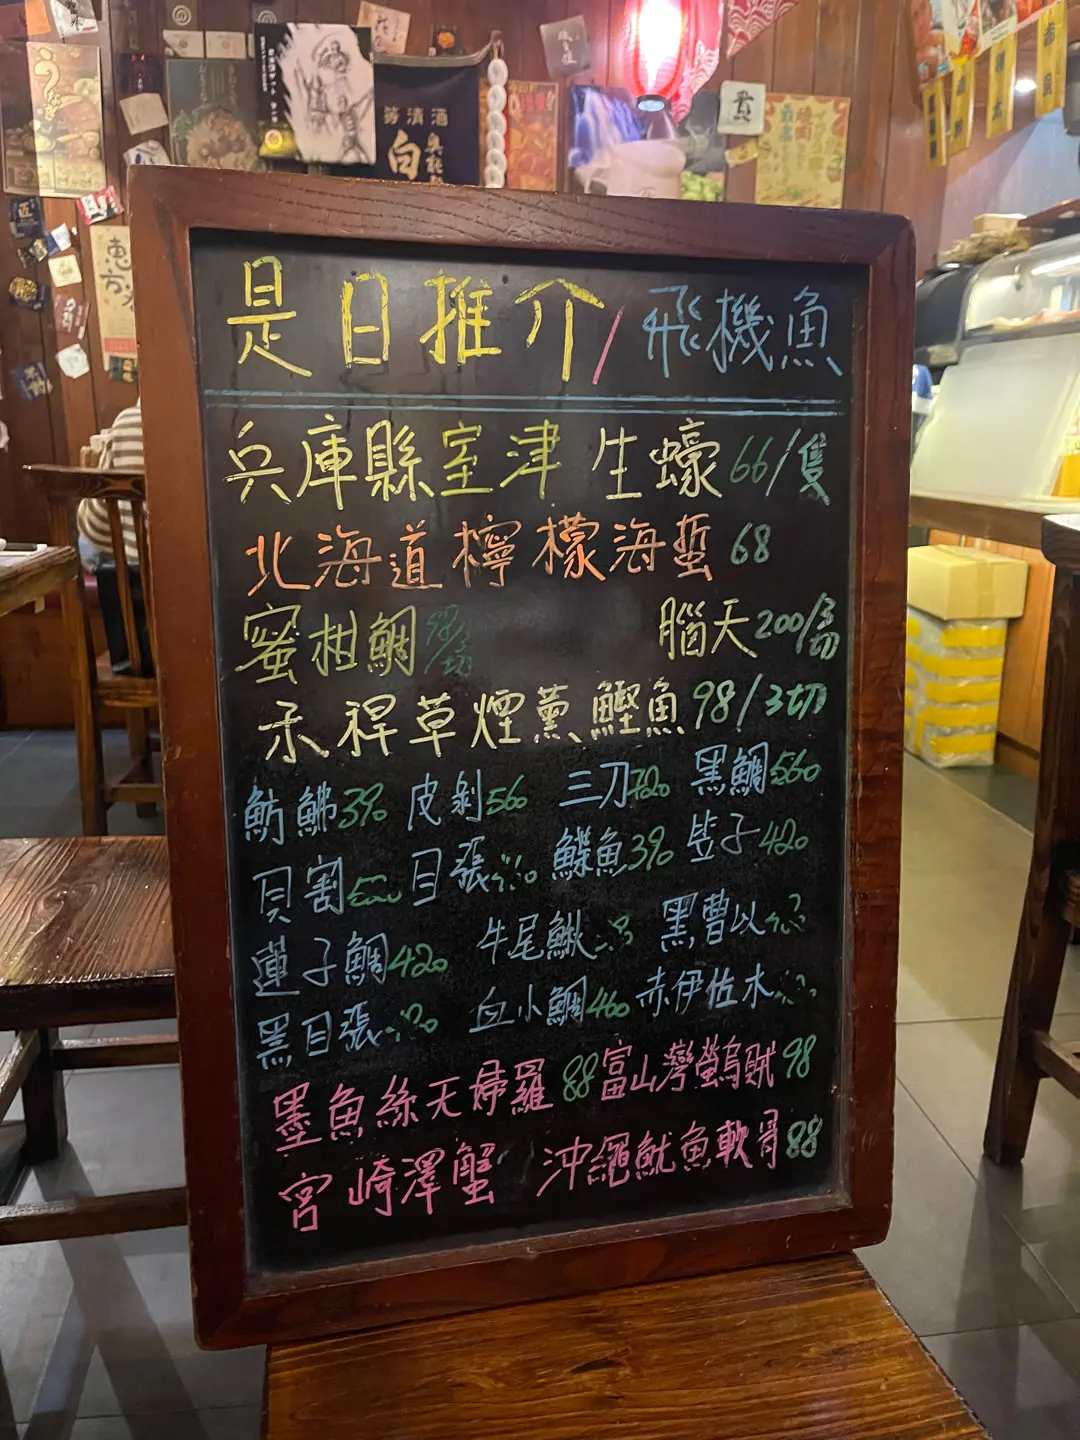 是日推介/飛機魚
兵庫縣室津 生蠔 66/隻
北海道檸檬海蜇 68
蜜柑鯛 98/3切 腦天 200/3切
禾稈草煙薰鰹魚 98/3切
魴鮄 390 皮剝 560 三刀 720 黑鯛 560
貝割 500 目張 鰈魚 390 笠子 420
蓮子鯛 420 牛尾鰍 黑曹以
黑目張 血小鯛 460 赤伊佐木
墨魚絲天婦羅 88 富山灣螢烏賊 98
宮崎澤蟹 沖繩魷魚軟骨 88
清酒
奥能
白
恵方